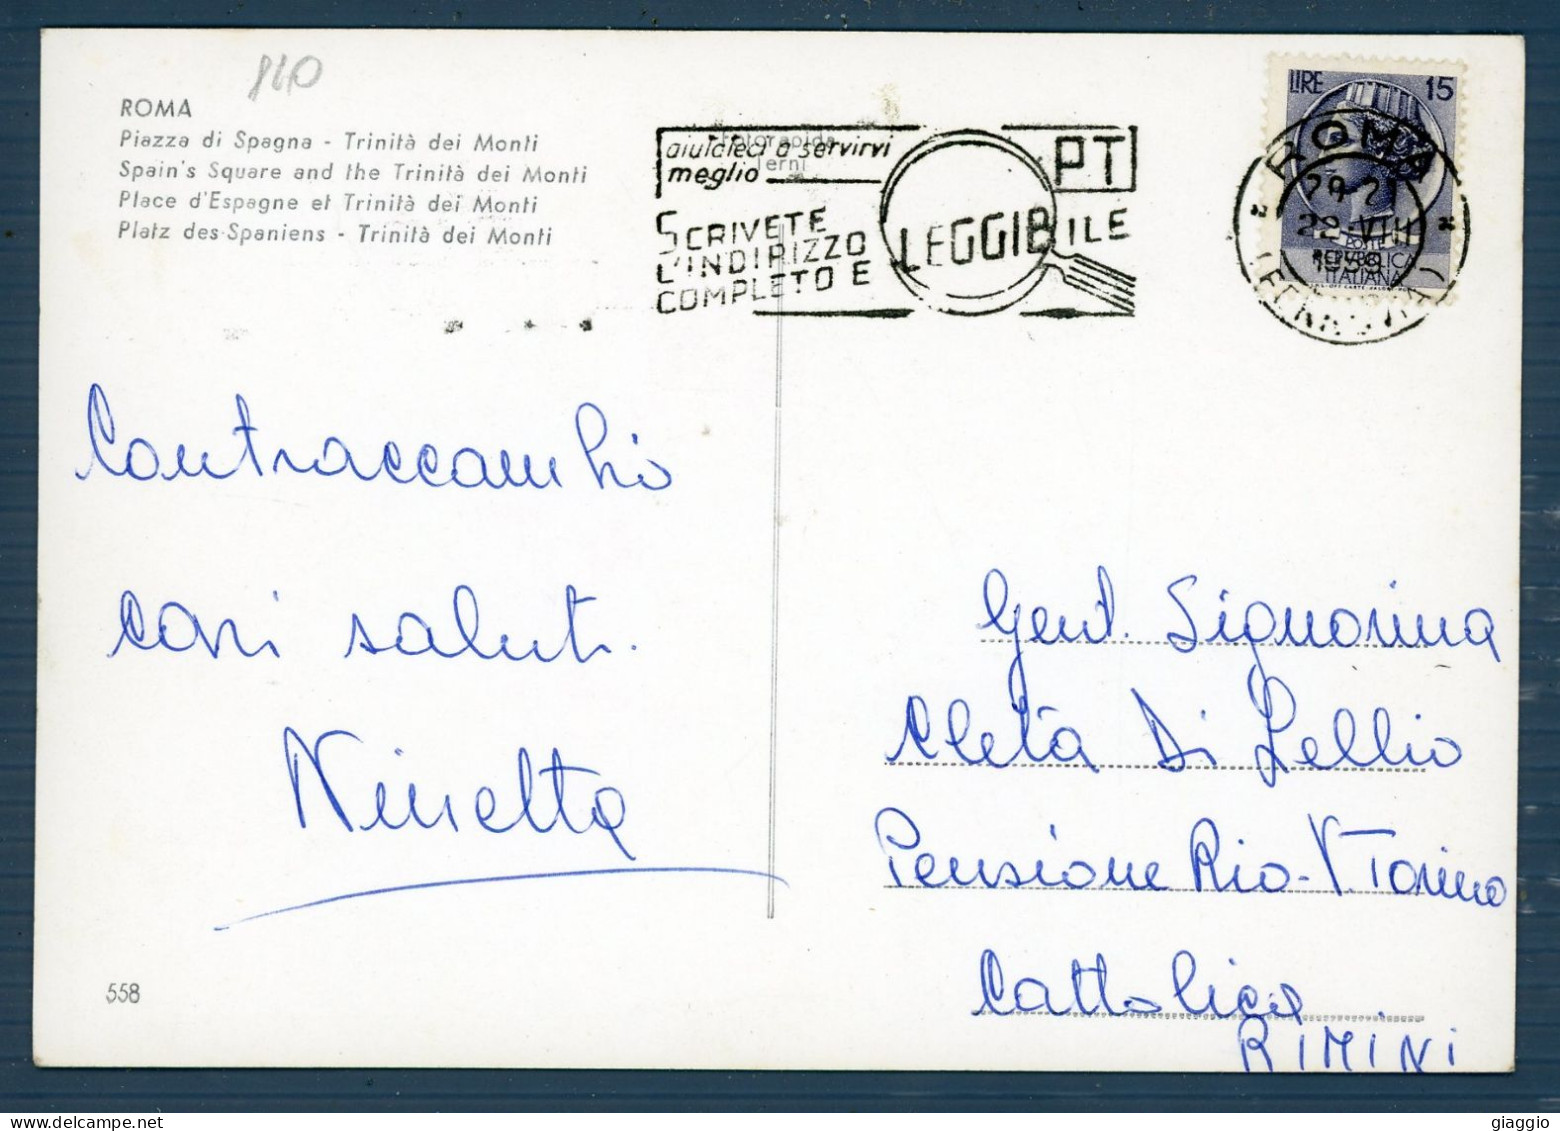 840
ROMA
Piazza di Spagna - Trinità dei Monti
Spain's Square and the Trinità dei Monti
Place d'Espagne et Trinità dei Monti
Platz des Spaniens - Trinità dei Monti
Fotorapida
Terni
aiutateci a servirvi
meglio
PT
SCRIVETE
L'INDIRIZZO
COMPLETO E
LEGGIBILE
LIRE 15
POSTE
REPVBBLICA
ITALIANA
ROMA
20-21
22-VIII
1958
(FERROVIA)
Contraccambio
cari saluti.
Ninetta
Gent. Signorina
Cleta Di Lellio
Pensione Rio - V. Torino
Cattolica
RIMINI
558
giaggio